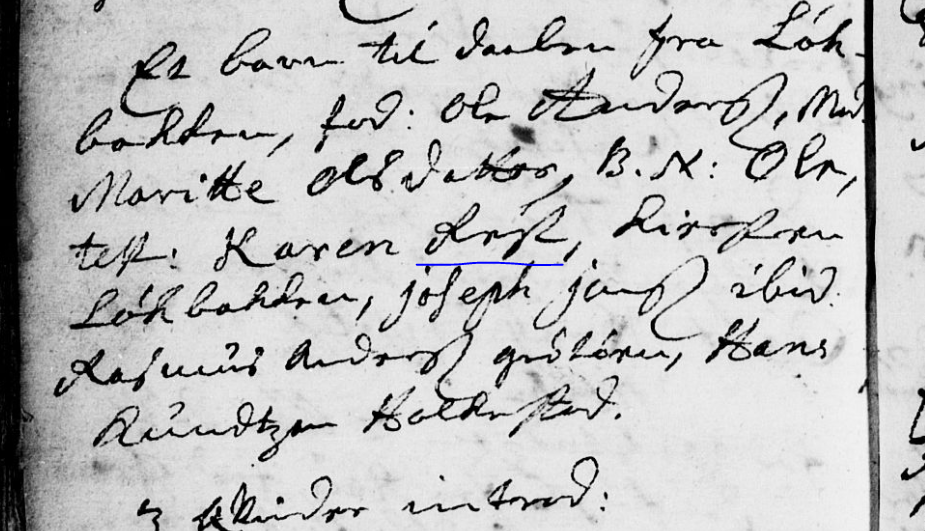 Et barn til daaben fra Løk-
bakken, fad: Ole Anderß, Mod:
Maritte Olsdatter, B. N: Ole,
test: Karen Kirsten
Løkbakken, joseph jenß ibid.
Rasmus Anderß Hans
Knudtzen
3 Qvinder introd: